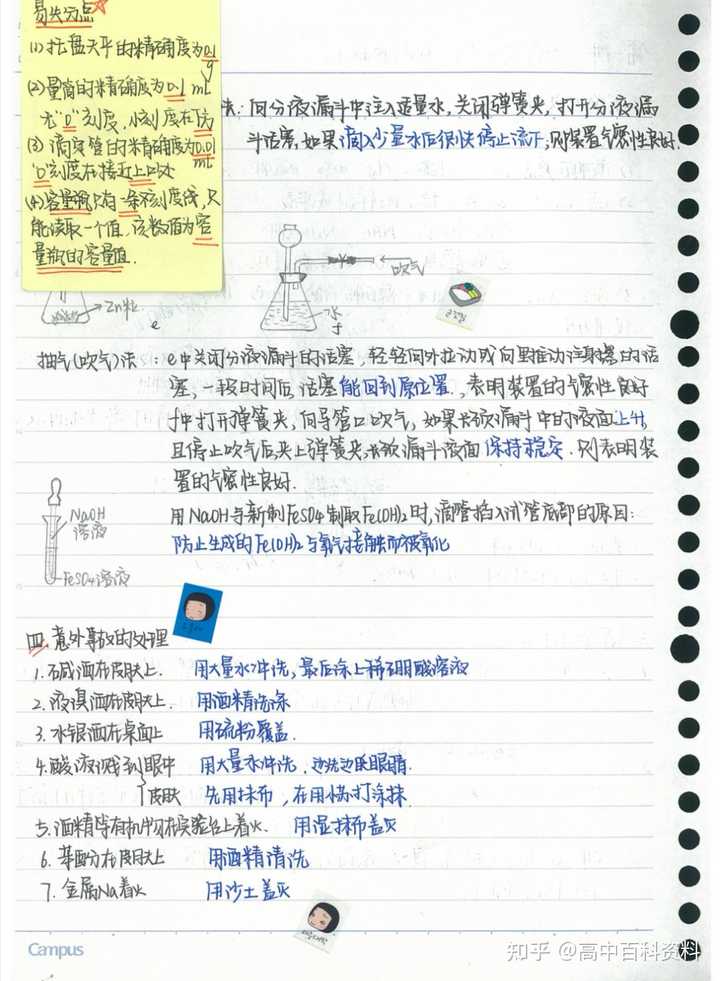 易失分点
(1)托盘天平的精确度为0.1
g
(2)量筒的精确度为0.1 mL
无"0"刻度,小刻度在下方
(3)滴定管的精确度为0.01
mL
"0"刻度在接近上口处
(4)容量瓶只有一条刻度线,只
能读取一个值.该数值为容
量瓶的容量值.
法:向分液漏斗中注入适量水,关闭弹簧夹,打开分液漏
斗活塞,如果滴入少量水后很快停止流下,则装置气密性良好.
吹气
Zn粒
水
e
f
抽气(吹气)法:e中关闭分液漏斗的活塞,轻轻向外拉动或向里推动注射器的活
塞,一段时间后,活塞能回到原位置.,表明装置的气密性良好
f中打开弹簧夹,向导管口吹气,如果长颈漏斗中的液面上升,
且停止吹气后夹上弹簧夹,长颈漏斗液面保持稳定.则表明装
置的气密性良好.
NaOH
溶液
FeSO4溶液
用NaOH与新制FeSO4制取Fe(OH)2时,滴管插入试管底部的原因:
防止生成的Fe(OH)2与氧气接触而被氧化
四.意外事故的处理
1.碱洒在皮肤上. 用大量水冲洗,最后涂上稀硼酸溶液
2.液溴洒在皮肤上. 用酒精洗涤
3.水银洒在桌面上 用硫粉覆盖.
4.酸液溅到眼中 用大量水冲洗,边洗边眨眼睛.
皮肤 先用抹布,在用小苏打涂抹.
5.酒精等有机物在实验台上着火. 用湿抹布盖灭
6.苯酚分在皮肤上 用酒精清洗
7.金属Na着火 用沙土盖灭
Campus
知乎 @高中百科资料